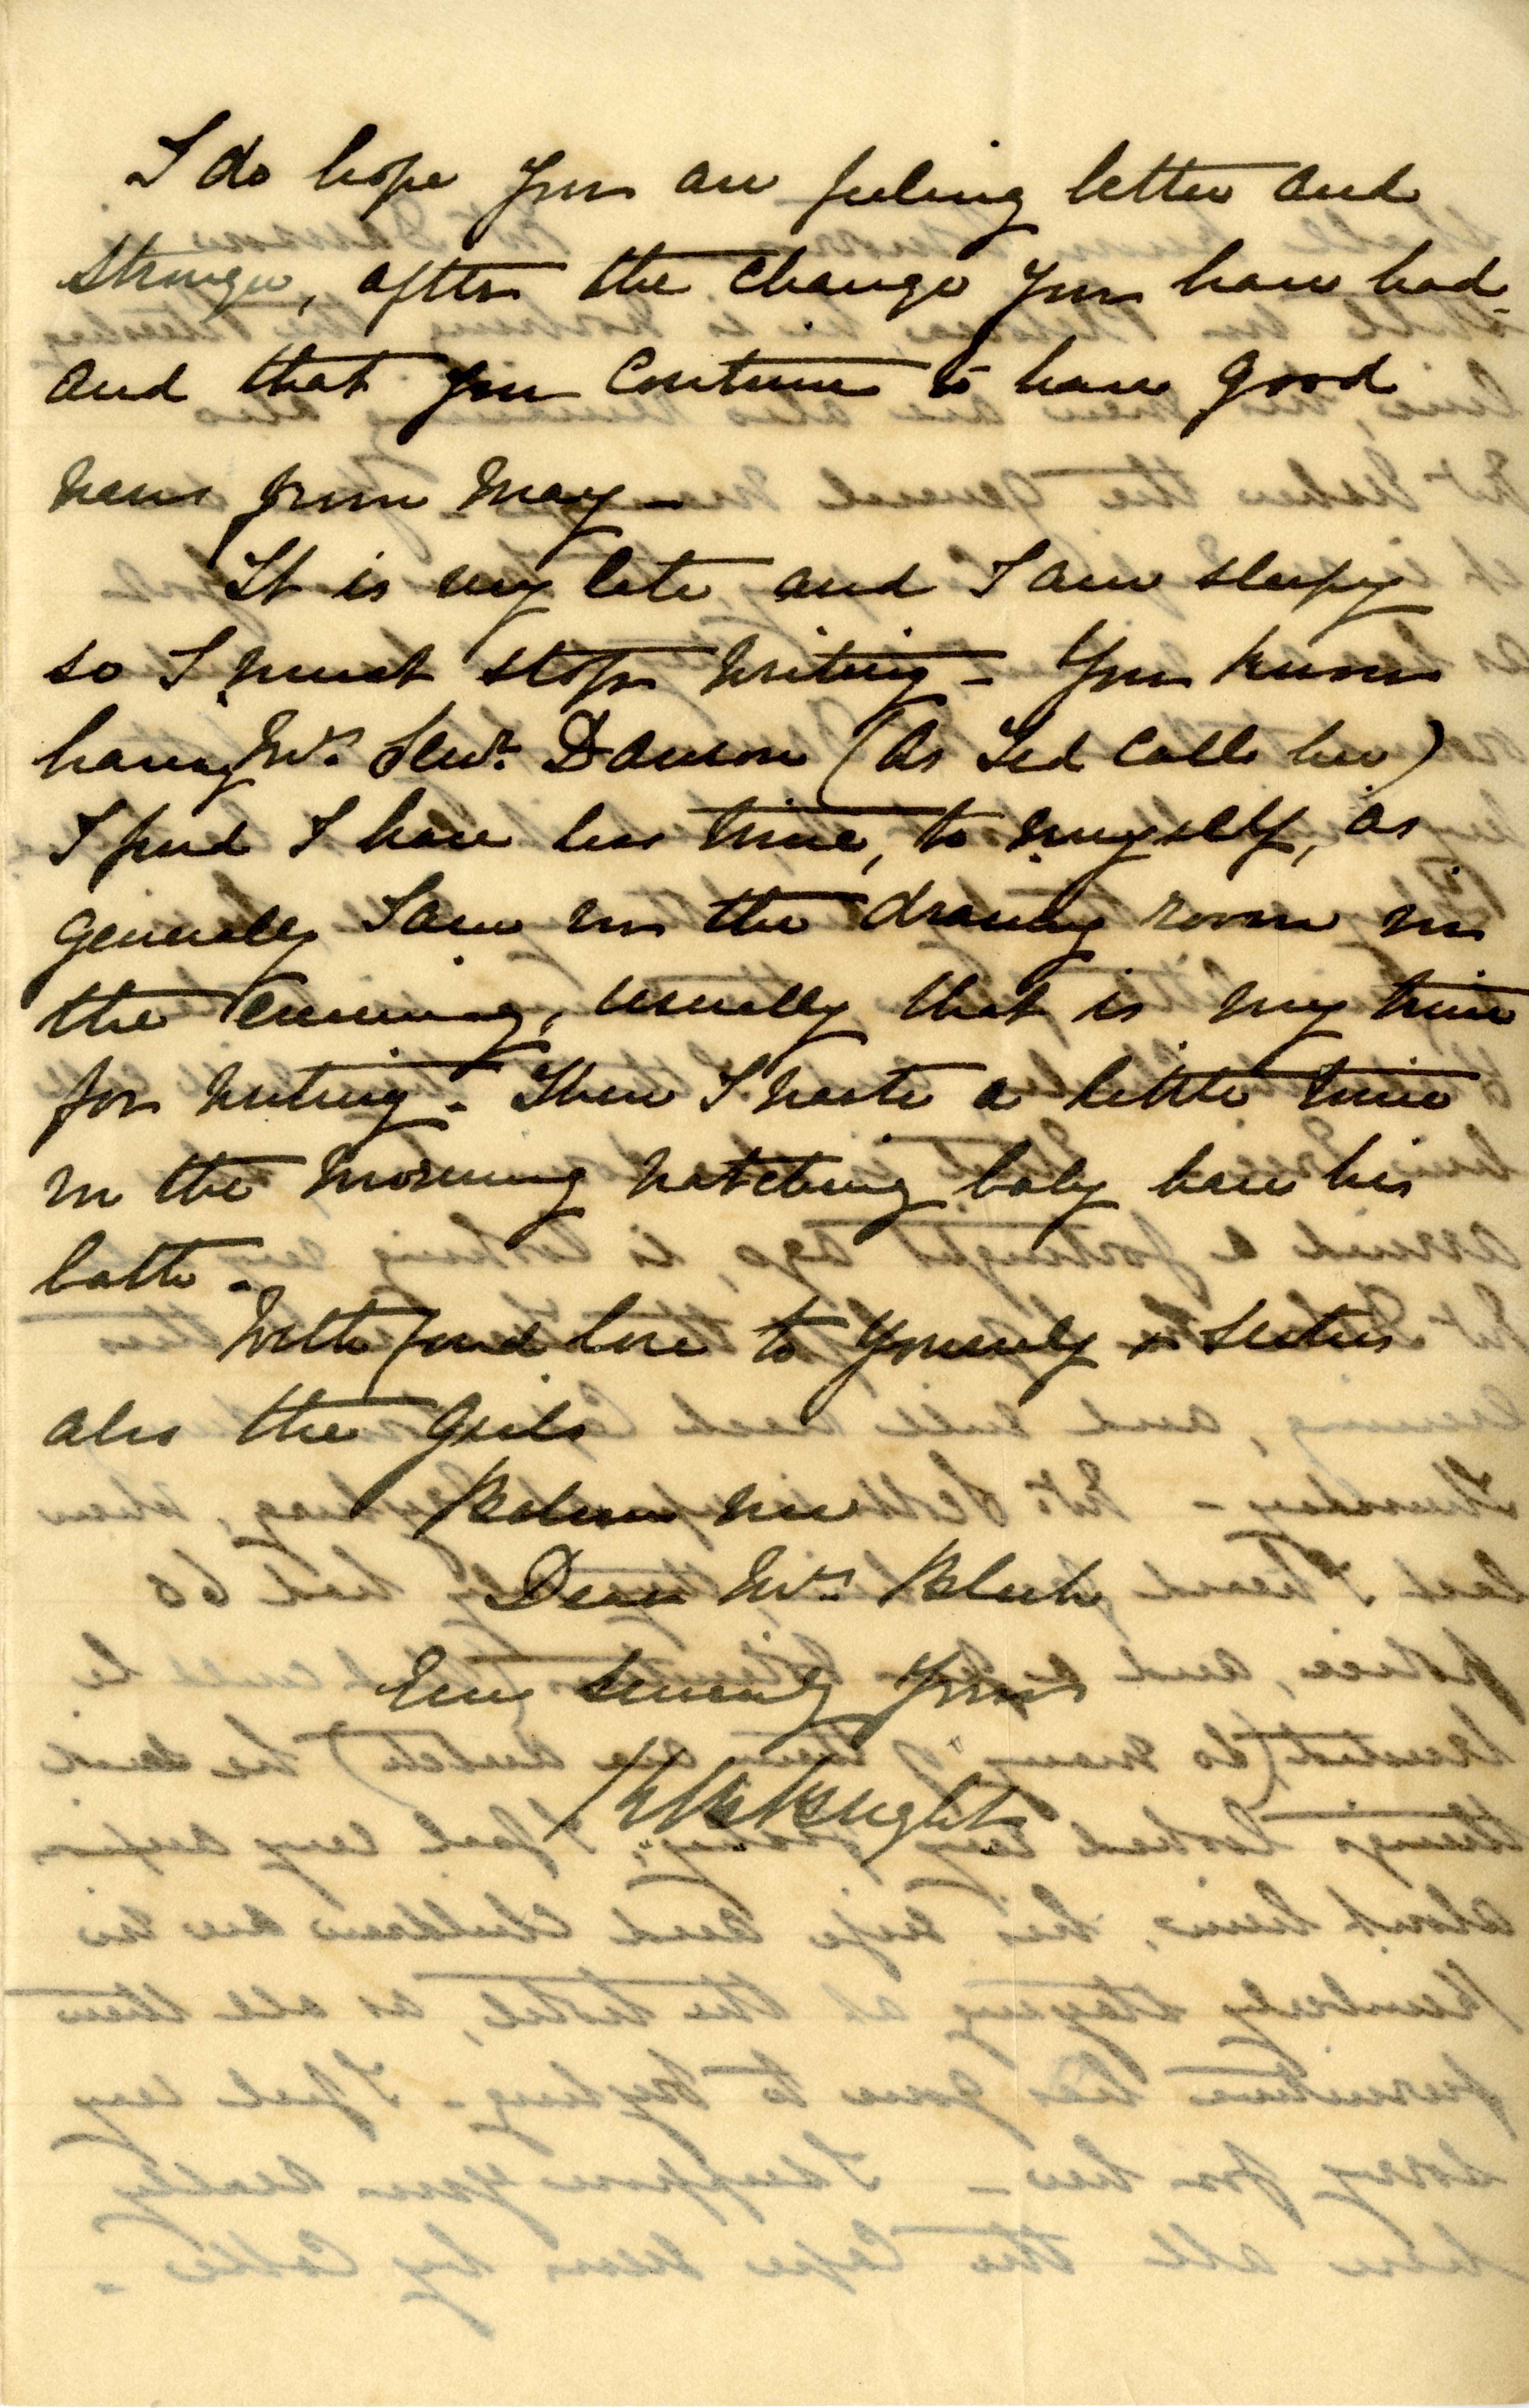 I do hope you are feeling better and
stronger, after the change you have had -
and that you continue to have good
news from May -
It is very late and I am sleepy
so I must stop writing - You know
having Mrs. Dawson (as Ted calls her)
I find I have less time, to myself, as
generally I am in the drawing room in
the evening, usually that is my time
for writing - Then I waste a little time
in the morning watching baby have his
bath -
With fond love to yourself & sisters
also the girls
Believe me
Dear Mrs.
Ever sincerely yours